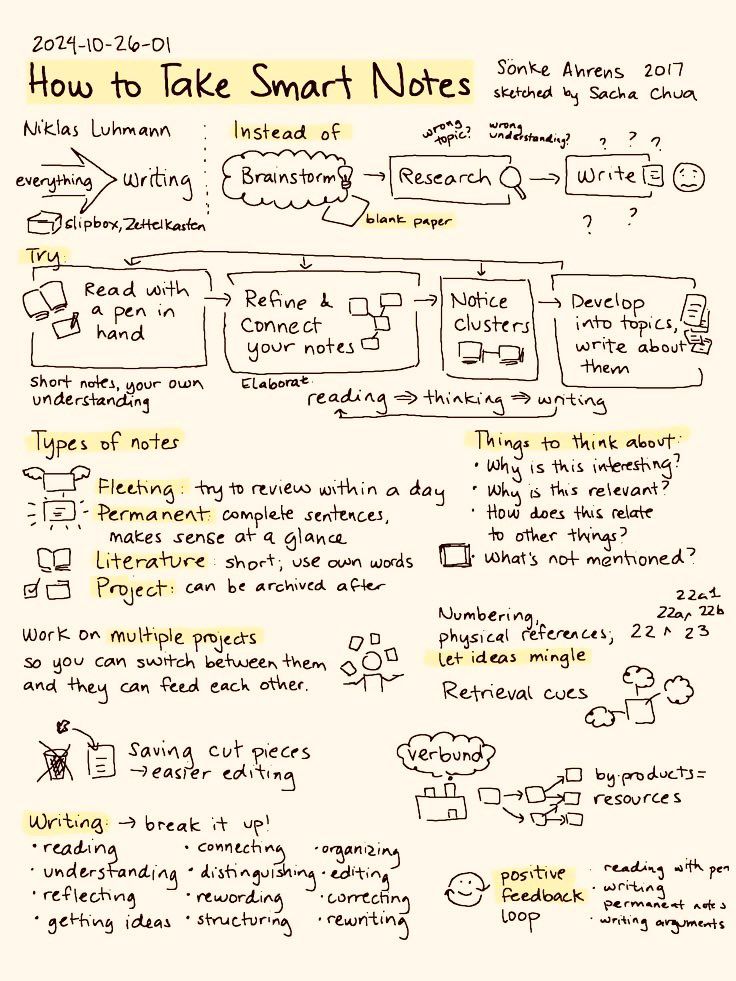 2024-10-26-01
How to Take Smart Notes
Sönke Ahrens 2017
sketched by Sacha Chua
Niklas Luhmann
everything
writing
slipbox, Zettelkasten
Instead of
Brainstorm
blank paper
wrong
topic?
Research
wrong
understanding?
Write
? ? ?
? ?
Try:
Read with
a pen in
hand
short notes, your own
understanding
Refine &
Connect
your notes
Elaborat
Notice
clusters
Develop
into topics,
write about
them
reading ⇒ thinking ⇒ writing
Types of notes
Fleeting: try to review within a day
Permanent: complete sentences,
makes sense at a glance
Literature: short; use own words
Project: can be archived after
Things to think about:
• Why is this interesting?
• Why is this relevant?
• How does this relate
to other things?
• What's not mentioned?
Work on multiple projects
so you can switch between them
and they can feed each other.
Numbering,
physical references;
let ideas mingle
22a1
22a 22b
22 ^ 23
Retrieval cues
Saving cut pieces
→ easier editing
verbund
by-products =
resources
Writing: → break it up!
• reading
• understanding
• reflecting
• getting ideas
• connecting
• distinguishing
• rewording
• structuring
• organizing
• editing
• correcting
• rewriting
positive
feedback
loop
• reading with pen
• writing
permanent notes
• writing arguments